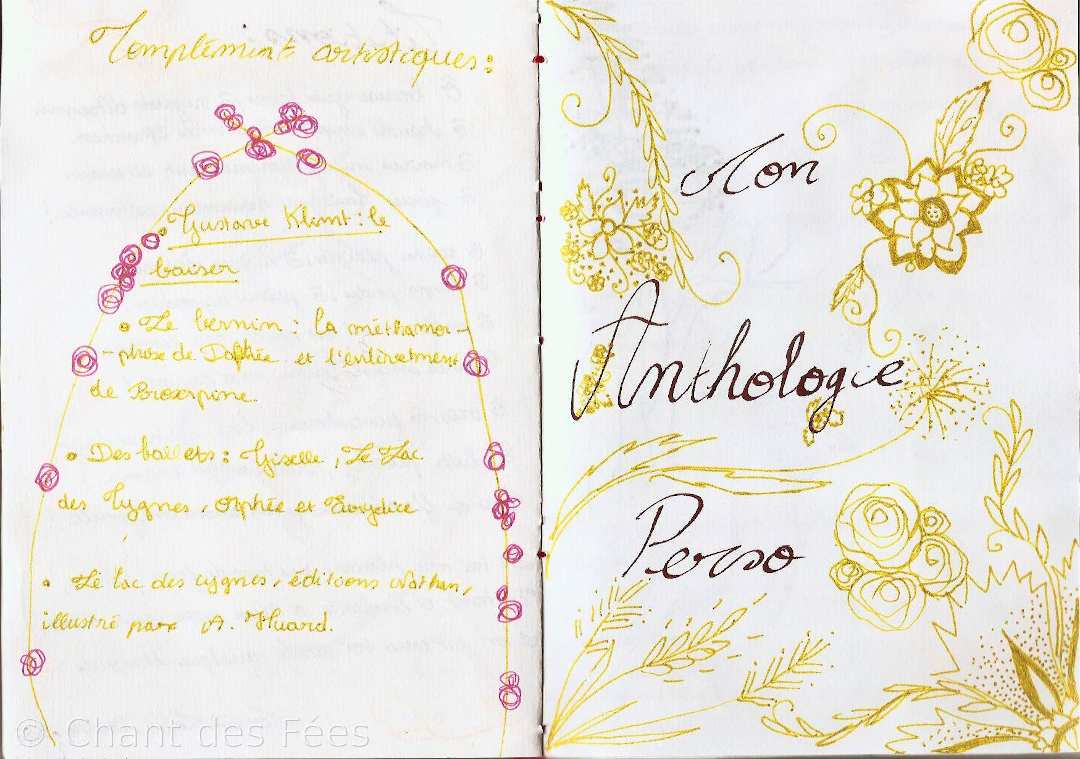 Complément artistiques :
• Gustave Klimt : le
baiser
• Le bernin : la méthamor-
-phose de Daphée et l'enlèvement
de Proserpine.
• Des ballets : Giselle, Le Lac
des Cygnes, Orphée et Eurydice
• Le lac des cygnes, éditions Nathan,
illustré par A. Huard.
Mon
Anthologie
Perso
© Chant des Fées